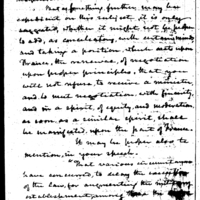 But if anything further may be
expedient on this subject, it is only
suggested, whether it might not be proper
to add, as conclusory, with
and taking a position, which acts upon
France, the renewal of negotiation
upon proper principles, that you
will not refuse to receive a minister,
and to meet negotiation with sincerity,
and in a spirit, of equity, and moderation,
as soon, as a similar spirit, shall
be manifested, upon the part of France.
It may be proper also to
mention, in your speech.
That various
have concurred, to delay the execution
of the law, for augmenting the military
establishment, among